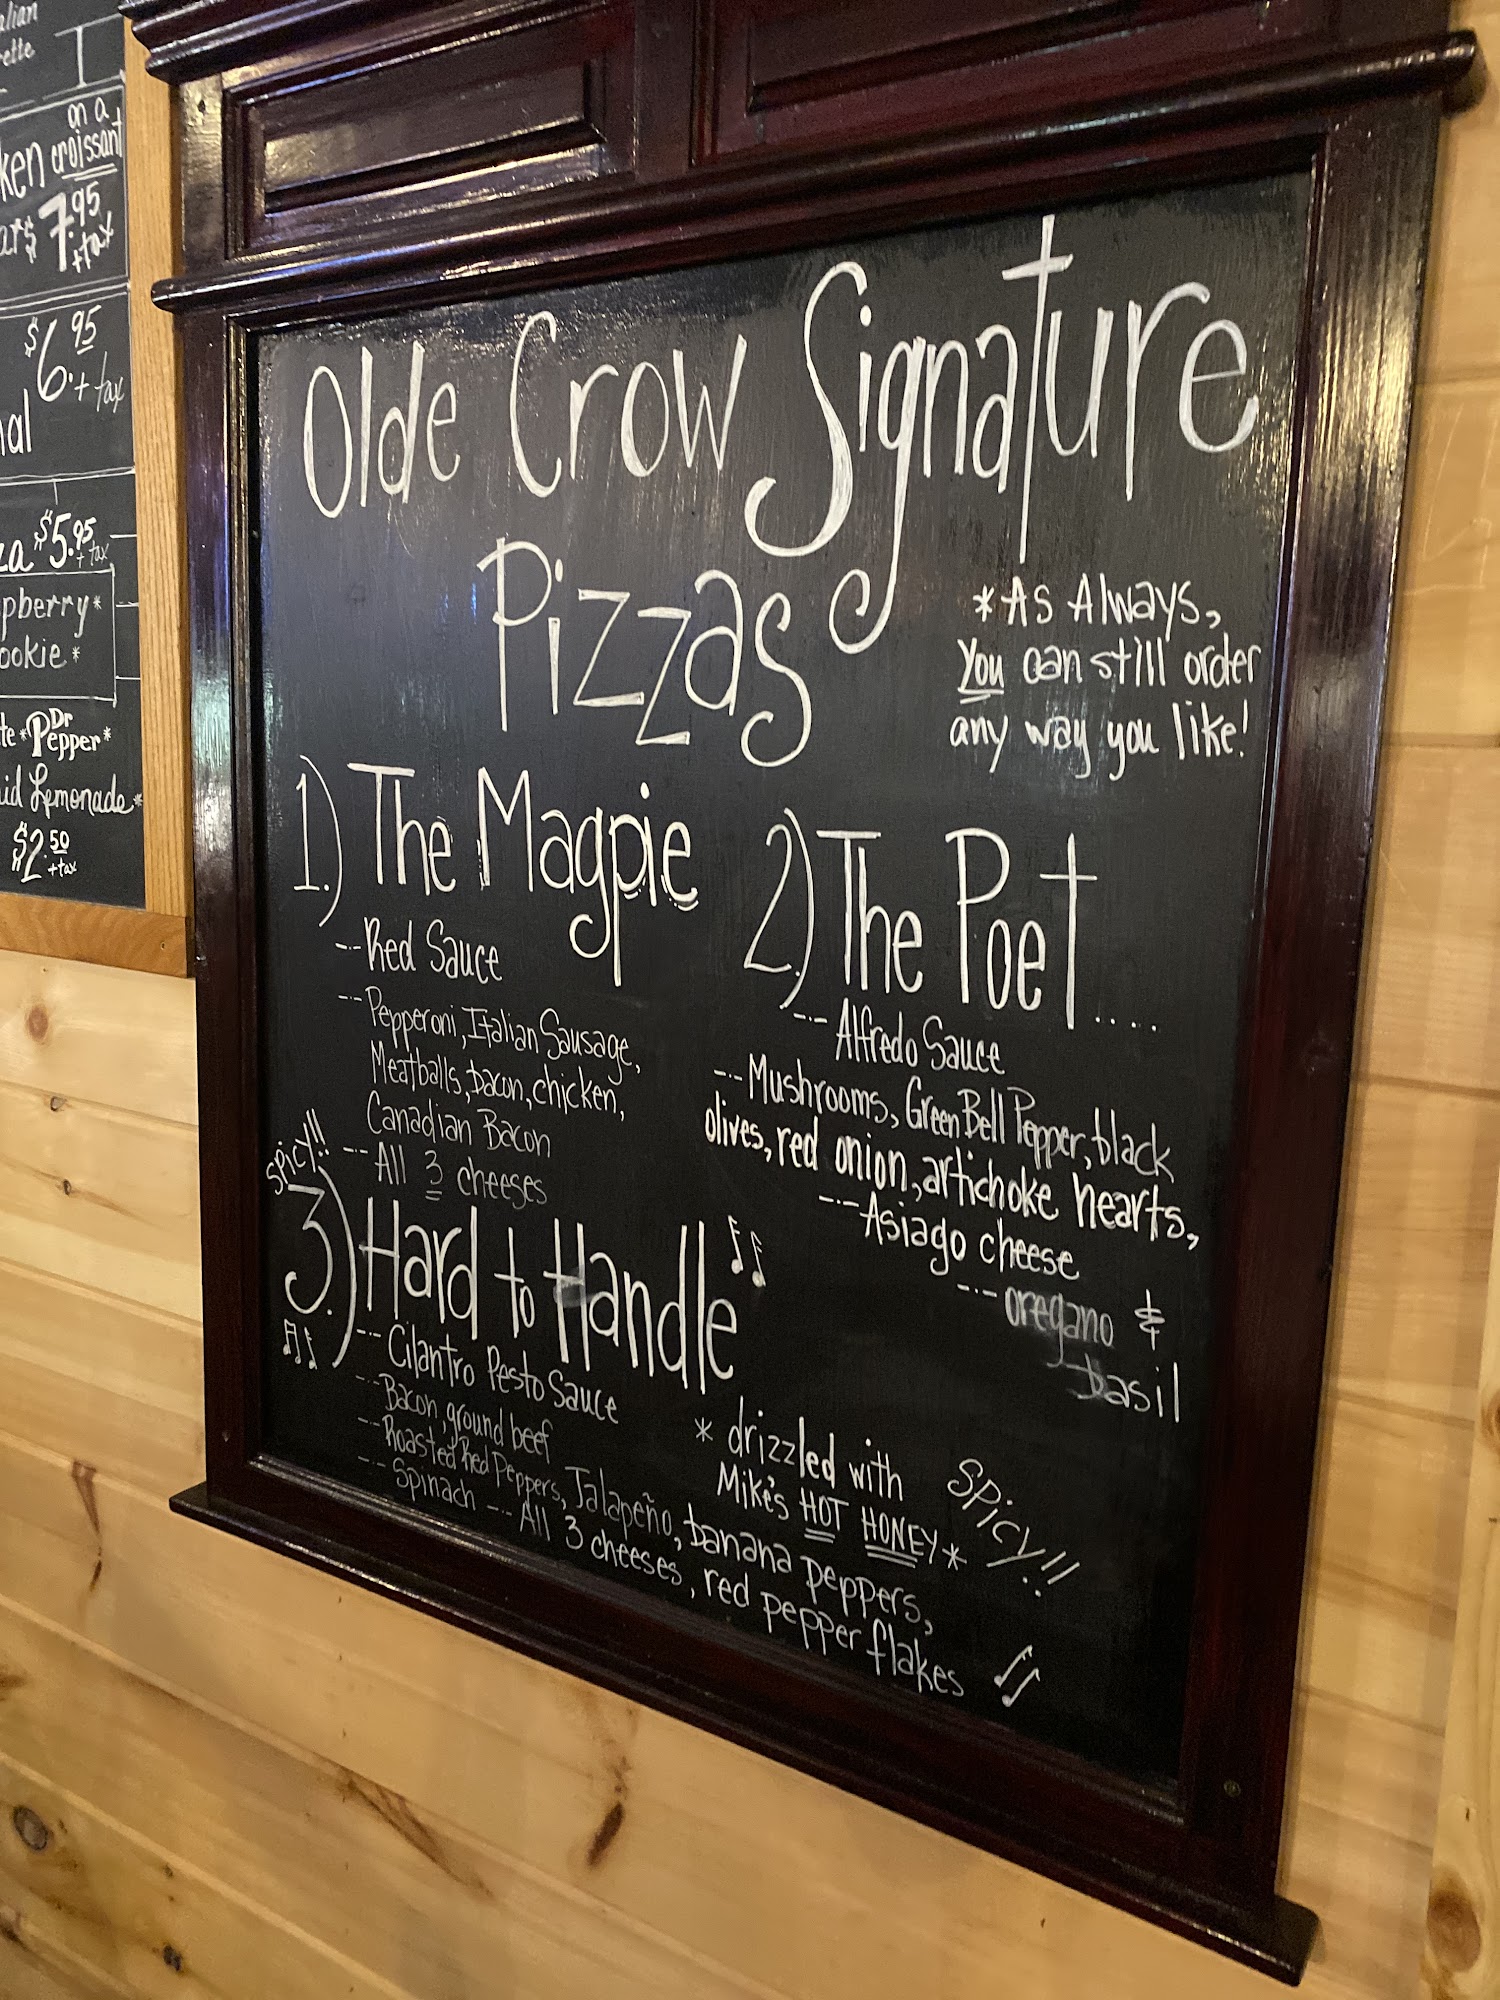 alian
ette
on a
ken croissant
ar $7.95
+tax
$6.95
+ tax
al
a $5.95
+ tax
pberry*
ookie*
te *Dr
Pepper*
id Lemonade*
$2.50
+tax
Olde Crow Signature
Pizzas
*As Always,
You can still order
any way you like!
1.) The Magpie
-·- Red Sauce
-·- Pepperoni, Italian Sausage,
Meatballs, bacon, chicken,
Canadian Bacon
-·- All 3 cheeses
2.) The Poet....
-·- Alfredo Sauce
-·- Mushrooms, Green Bell Pepper, black
olives, red onion, artichoke hearts,
-·- Asiago cheese
-·- oregano &
basil
spicy!!
3.) Hard to Handle
-·- Cilantro Pesto Sauce
-·- Bacon, ground beef
-·- Roasted Red Peppers, Jalapeño, banana peppers,
-·- Spinach -·- All 3 cheeses, red pepper flakes
* drizzled with
Mike's HOT HONEY *
SPicy!!